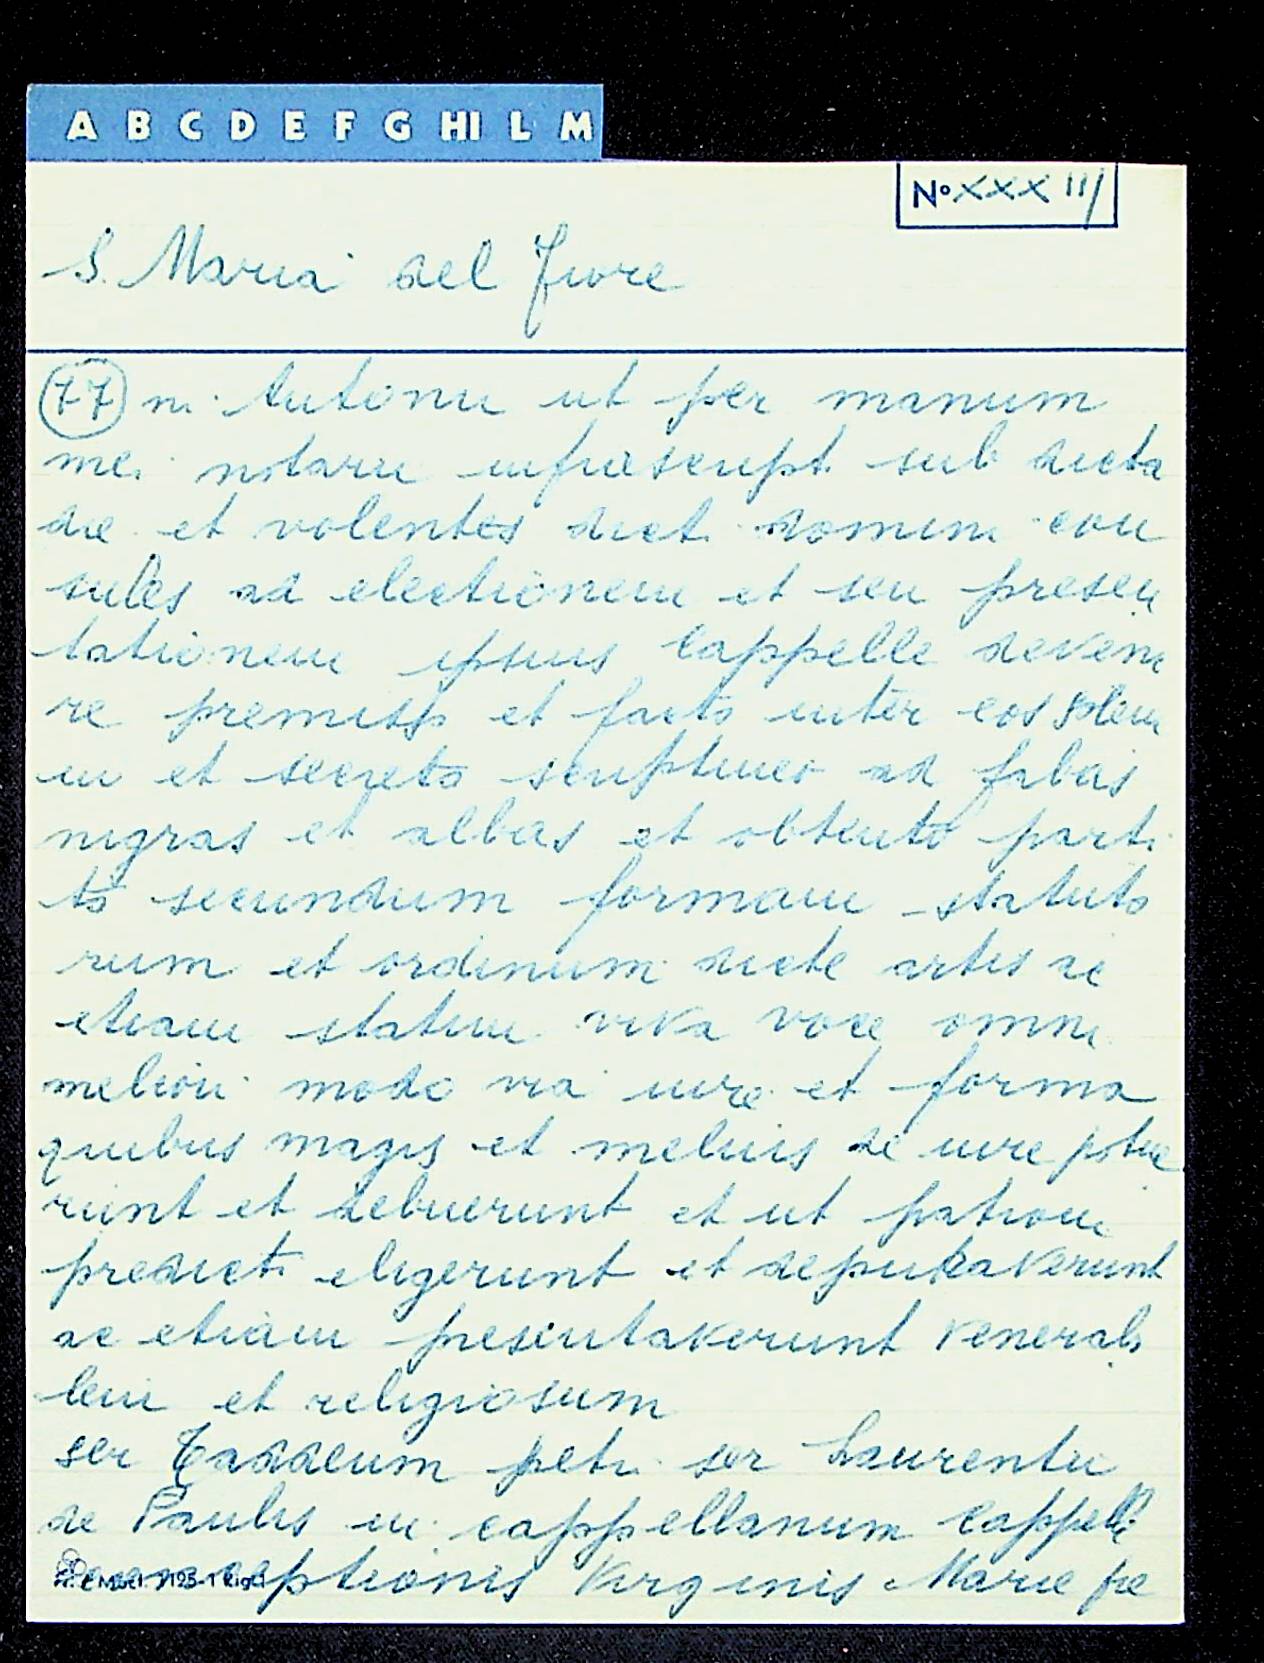 A B C D E F G HI L M
No XXXIII
S. Maria del Fiore
77 ni Antonii ut per manum
mei notarii infrascript. sub dicta
die et volentes dict. domini con
sules ad electionem et seu presen
tationem ipsius Cappelle deveni
re premisso et facto inter eos solem
ni et secreto scruptineo ad fabas
nigras et albas et obtento parti
to secundum formam statuto
rum et ordinum dicte artis ac
etiam statim viva voce omni
meliori modo via iure et forma
quibus magis et melius de iure potue
runt et debuerunt et ut patroni
predicti eligerunt et deputaverunt
ac etiam presentaverunt venerabi
lem et religiosum
ser Taddeum petri ser Laurentii
de Paulis in cappellanum Cappelle
Conceptionis Virginis Marie pe